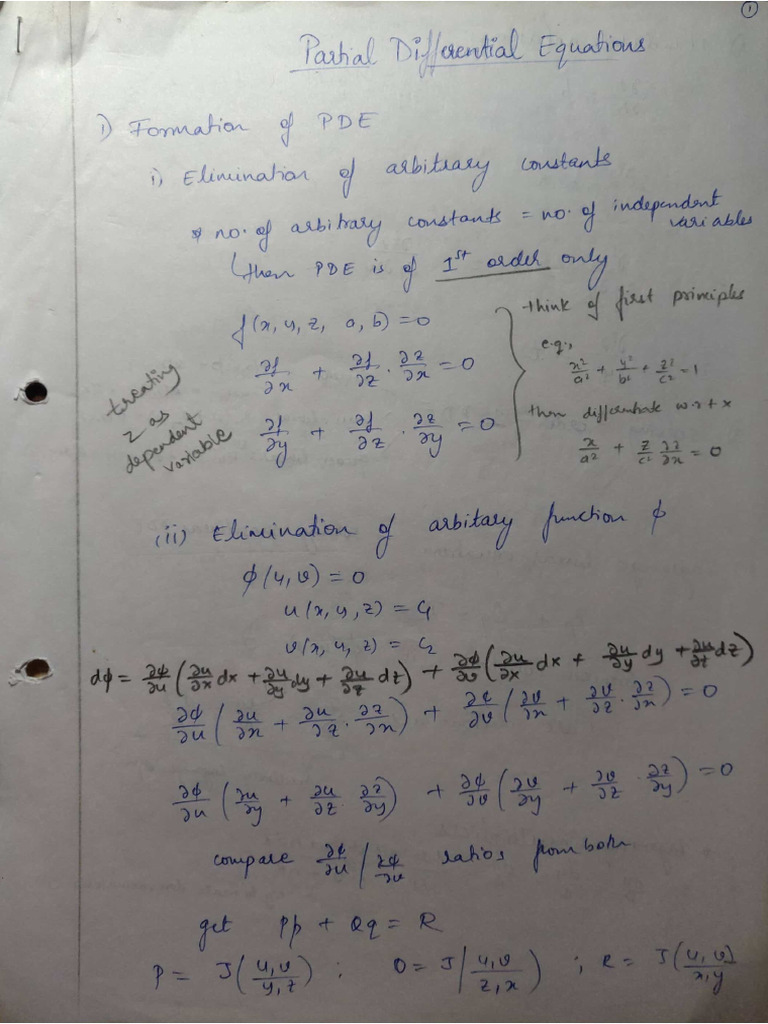 ①
Partial Differential Equations
1) Formation of PDE
i) Elimination of arbitrary constants
* no. of arbitrary constants = no. of independent variables
↳ then PDE is of 1st order only
f(x, y, z, a, b) = 0
∂f/∂x + ∂f/∂z · ∂z/∂x = 0
∂f/∂y + ∂f/∂z · ∂z/∂y = 0
treating
z as
dependent
variable
think of first principles
e.g.,
x²/a² + y²/b² + z²/c² = 1
then differentiate w.r.t x
x/a² + z/c² ∂z/∂x = 0
(ii) Elimination of arbitary function ϕ
ϕ(u, v) = 0
u(x, y, z) = C₁
v(x, y, z) = C₂
dϕ = ∂ϕ/∂u (∂u/∂x dx + ∂u/∂y dy + ∂u/∂z dz) + ∂ϕ/∂v (∂u/∂x dx + ∂u/∂y dy + ∂u/∂z dz)
∂ϕ/∂u (∂u/∂x + ∂u/∂z · ∂z/∂x) + ∂ϕ/∂v (∂v/∂x + ∂v/∂z · ∂z/∂x) = 0
∂ϕ/∂u (∂u/∂y + ∂u/∂z · ∂z/∂y) + ∂ϕ/∂v (∂v/∂y + ∂v/∂z · ∂z/∂y) = 0
compare ∂ϕ/∂u / ∂ϕ/∂v ratios from both
get Pp + Qq = R
P = J(u,v/y,z) ; Q = J(u,v/z,x) ; R = J(u,v/x,y)